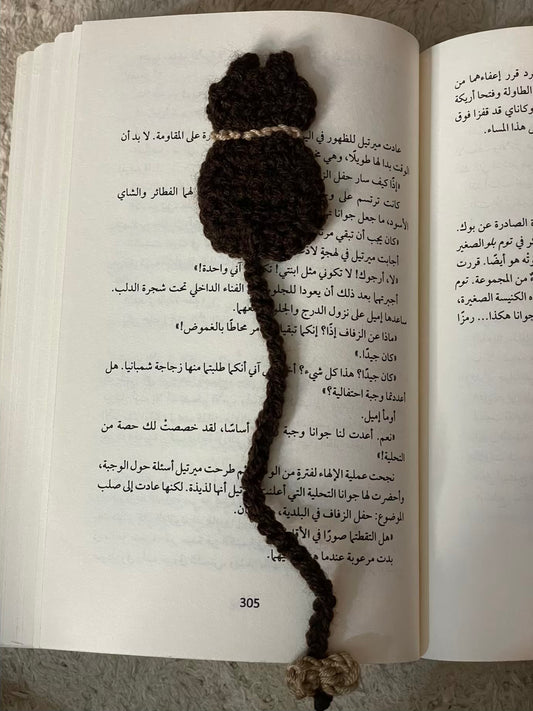 عادت ميرتيل للظهور في ة على المقاومة. لا بد أن
الوقت بدا لها طويلًا، وهي
«إذًا كيف سار حفل
كانت ترتسم على لهما الفطائر والشاي
الأسود، ما جعل جوانا
«كان يجب أن تبقي
أجابت ميرتيل في لهجة
«لا، أرجوك! لا تكوني مثل ابنتي! آني واحدة!»
أجبرتهما بعد ذلك أن يعودا للجلوس الفناء الداخلي تحت شجرة الدلب.
ساعدها إميل على نزول الدرج معهما.
«ماذا عن الزفاف إذًا؟ إنكما تبقيان مر محاطًا بالغموض!»
«كان جيدًا.»
«كان جيدًا؟ هذا كل شيء؟ آني أنكما طلبتما منها زجاجة شمبانيا. هل
أعددتما وجبة احتفالية؟»
أومأ إميل.
«نعم. أعدت لنا جوانا وجبة أساسًا، لقد خصصتْ لك حصة من
التحلية!»
نجحت عملية الإلهاء لفترة من طرحت ميرتيل أسئلة حول الوجبة،
وأحضرت لها جوانا التحلية التي تيل أنها لذيذة. لكنها عادت إلى صلب
الموضوع: حفل الزفاف في البلدية،
«هل التقطتما صورًا في
بدت مرعوبة عندما
305
رد قرر إعفاءهما من
الطاولة وفتحا أريكة
وكاناي قد قفزا فوق
هذا المساء.
ة الصادرة عن بوك.
ر في توم بلو الصغير
هو أيضًا. قررت
من المجموعة. توم
ه الكنيسة الصغيرة،
جوانا هكذا... رمزًا